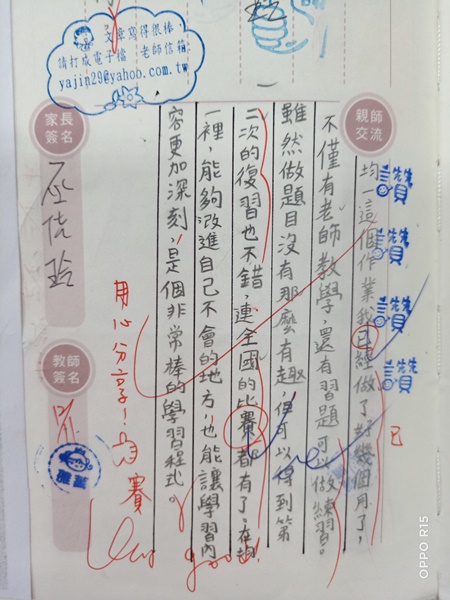 文章寫得很棒
請打成電子檔 老師信箱
yajin29@yahoo.com.tw
親師交流
均一這個作業我已經做了好幾個月了，
不僅有老師教學，還有習題可以做練習。
雖然做題目沒有那麼有趣，但可以得到第
二次的復習也不錯，連全國的比賽都有了，在
一裡，能夠改進自己不會的地方，也能讓學習內
容更加深刻，是個非常棒的學習程式。
讚
讚
讚
讚
已
賽
用心分享！
Very good!
家長簽名
教師簽名
OPPO R15